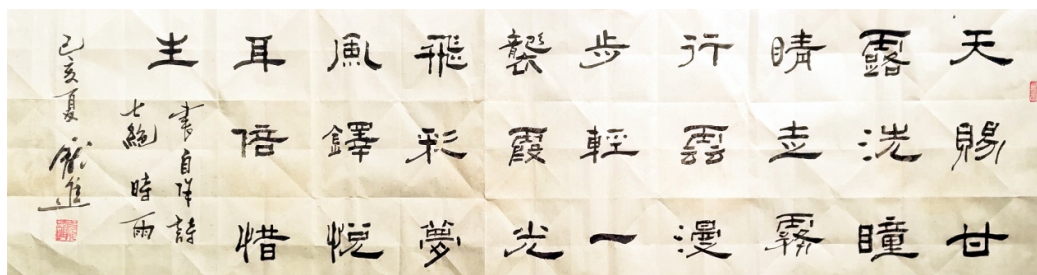 天賜甘
露洗瞳
睛走霧
行雲漫
步輕一
襲霞光
飛彩夢
風鐸悅
耳倍惜
生
書自詩
七絕時雨
己亥夏進